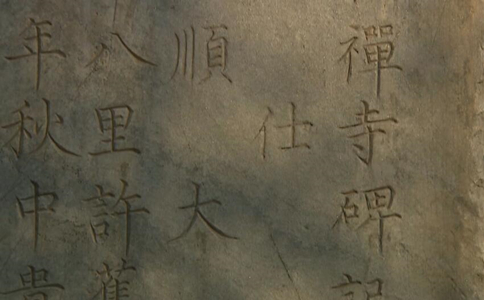 禪寺碑記
仕
順大
八里許舊
年秋中貴